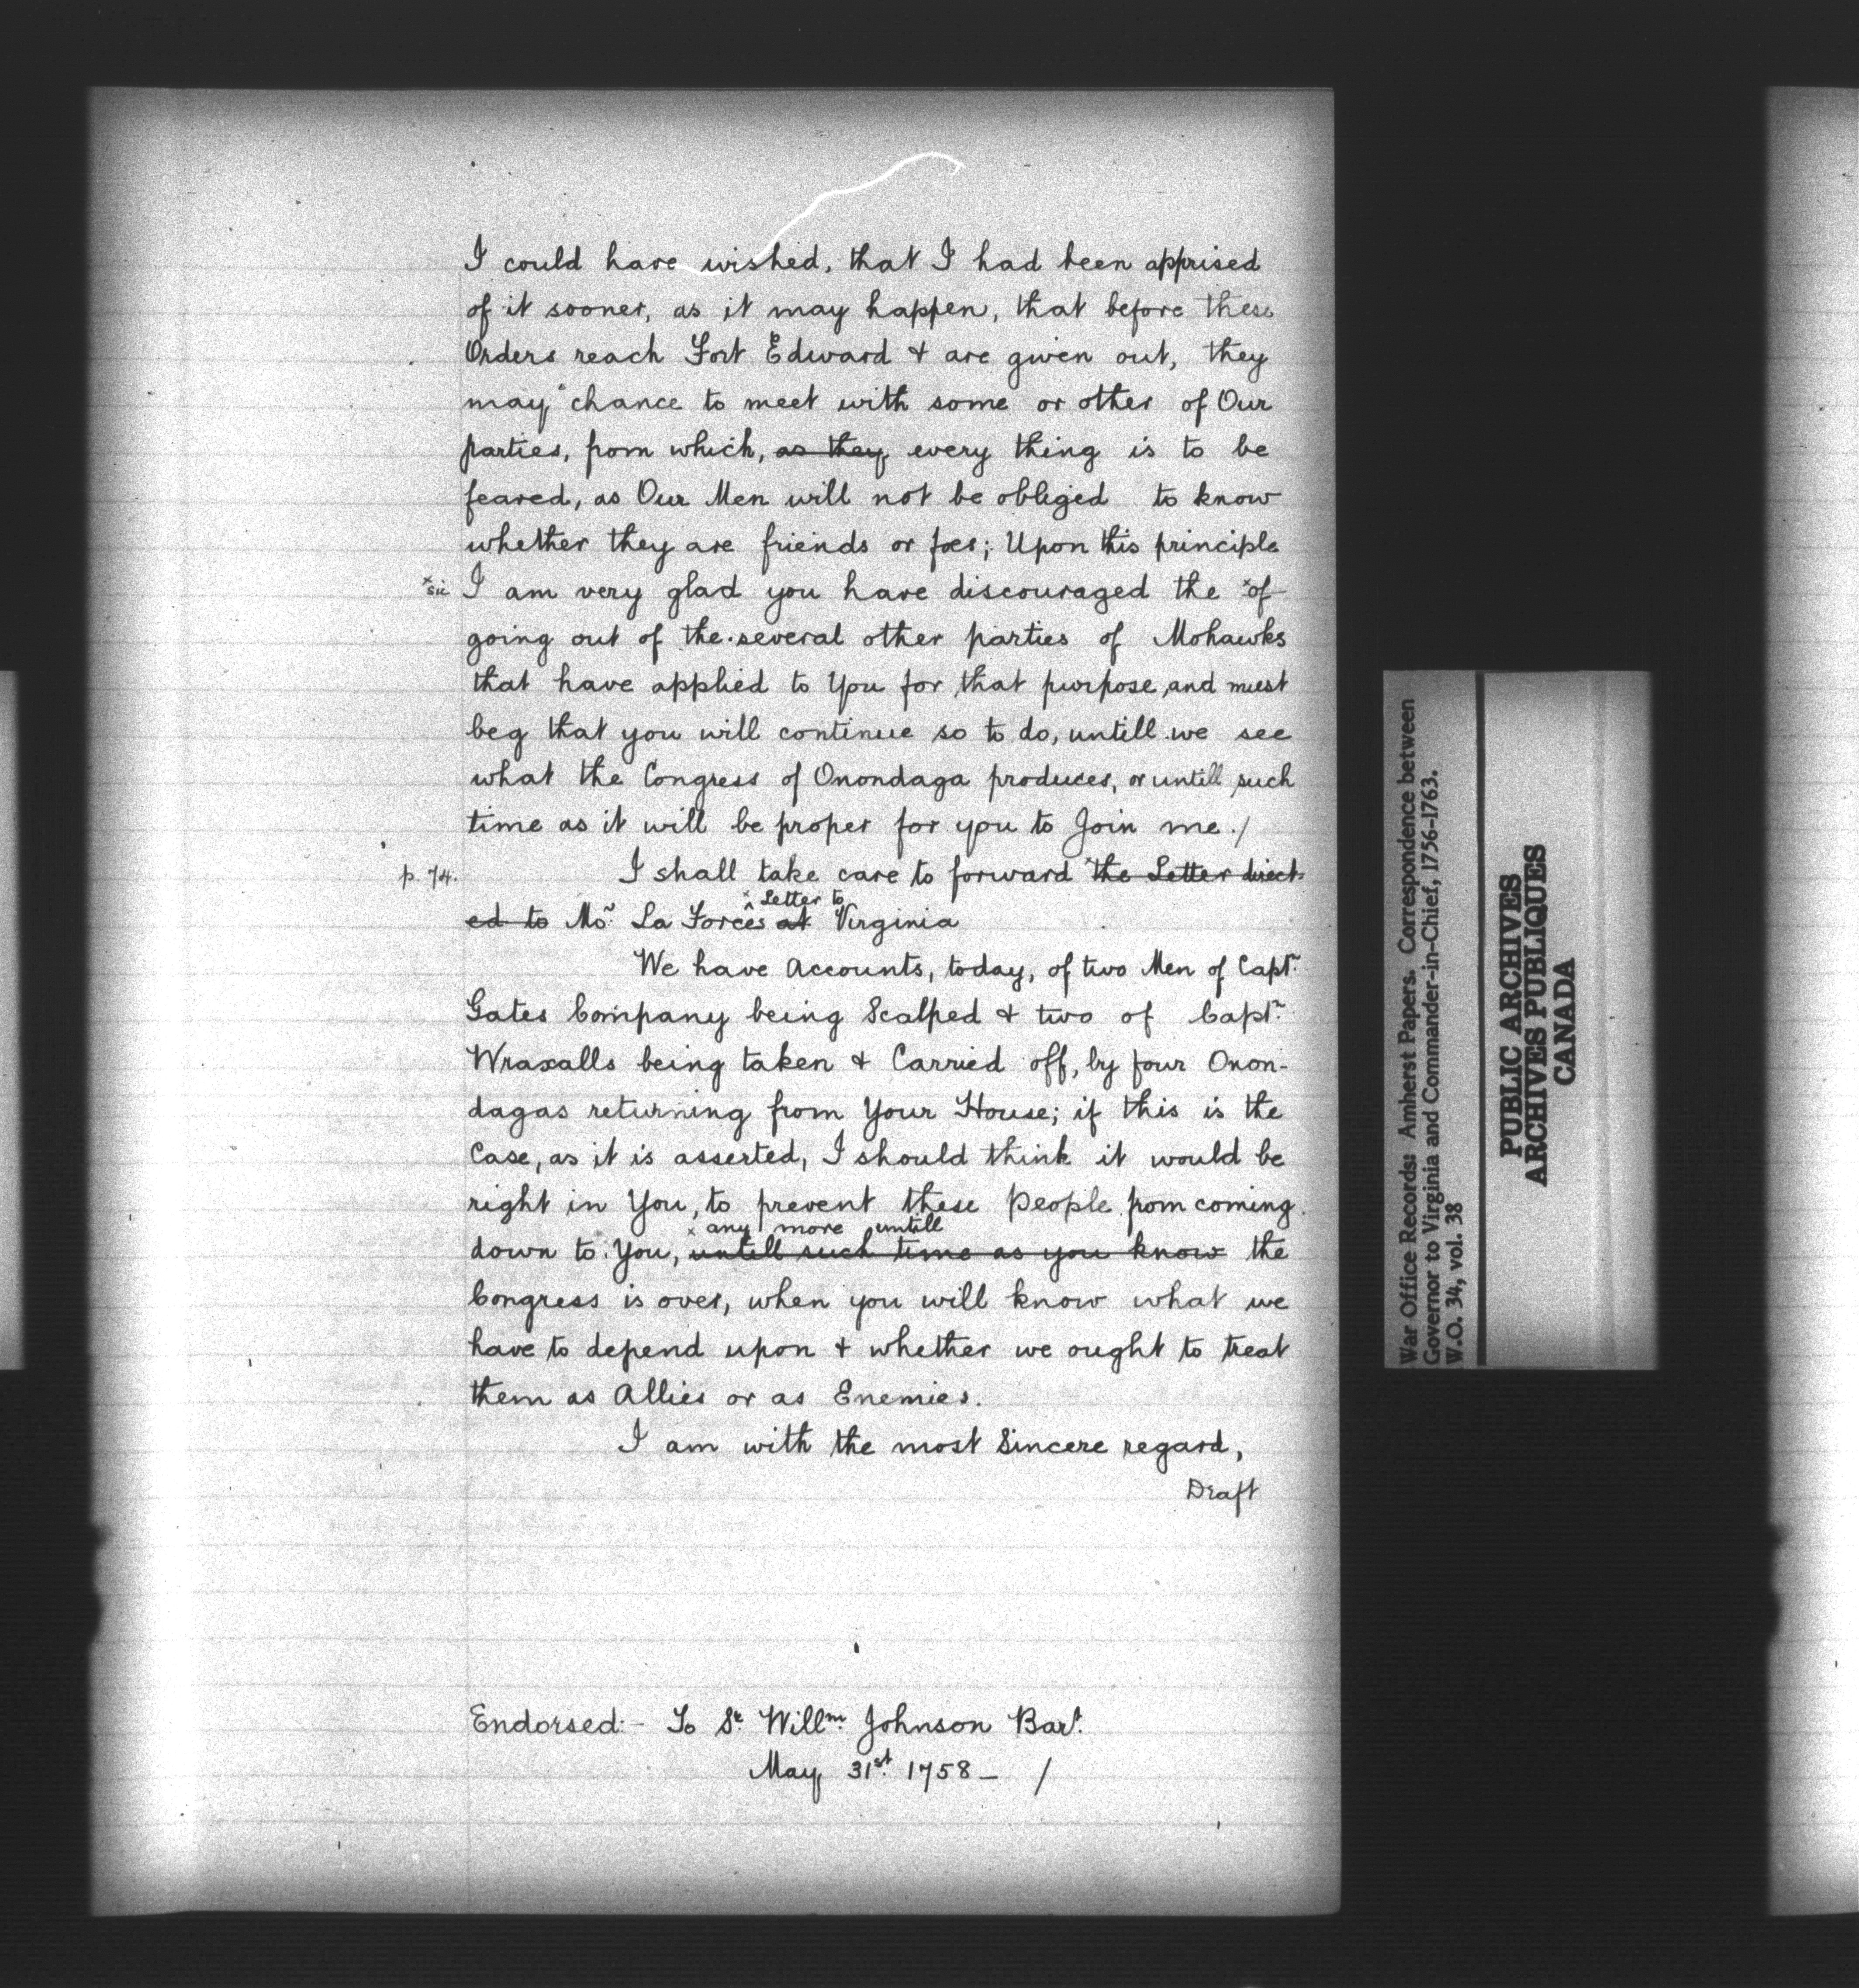 I could have wished, that I had been apprised
of it sooner, as it may happen, that before these
Orders reach Fort Edward & are given out, they
may chance to meet with some or other of Our
parties, from which, as they every thing is to be
feared, as Our Men will not be obliged to know
whether they are friends or foes; Upon this principle
x sic I am very glad you have discouraged the x of
going out of the several other parties of Mohawks
that have applied to You for that purpose, and must
beg that you will continue so to do, untill we see
what the Congress of Onondaga produces, or untill such
time as it will be proper for you to Join me./
p. 74. I shall take care to forward x the Letter direct-
x Letter to
ed to Mor. La Force^s at Virginia
We have Accounts, today, of two Men of Captn.
Gates Company being Scalped & two of Captn.
Wraxalls being taken & Carried off, by four Onon-
dagas returning from Your House; if this is the
Case, as it is asserted, I should think it would be
right in You, to prevent these People from coming
x any more untill
down to You, untill such time as you know the
Congress is over, when you will know what we
have to depend upon & whether we ought to treat
them as Allies or as Enemies.
I am with the most Sincere regard,
Draft
Endorsed:- To Sr. Willm. Johnson Bart.
May 31st. 1758_ /
War Office Records: Amherst Papers. Correspondence between
Governor to Virginia and Commander-in-Chief, 1756-1763.
W.O. 34, vol. 38
PUBLIC ARCHIVES
ARCHIVES PUBLIQUES
CANADA